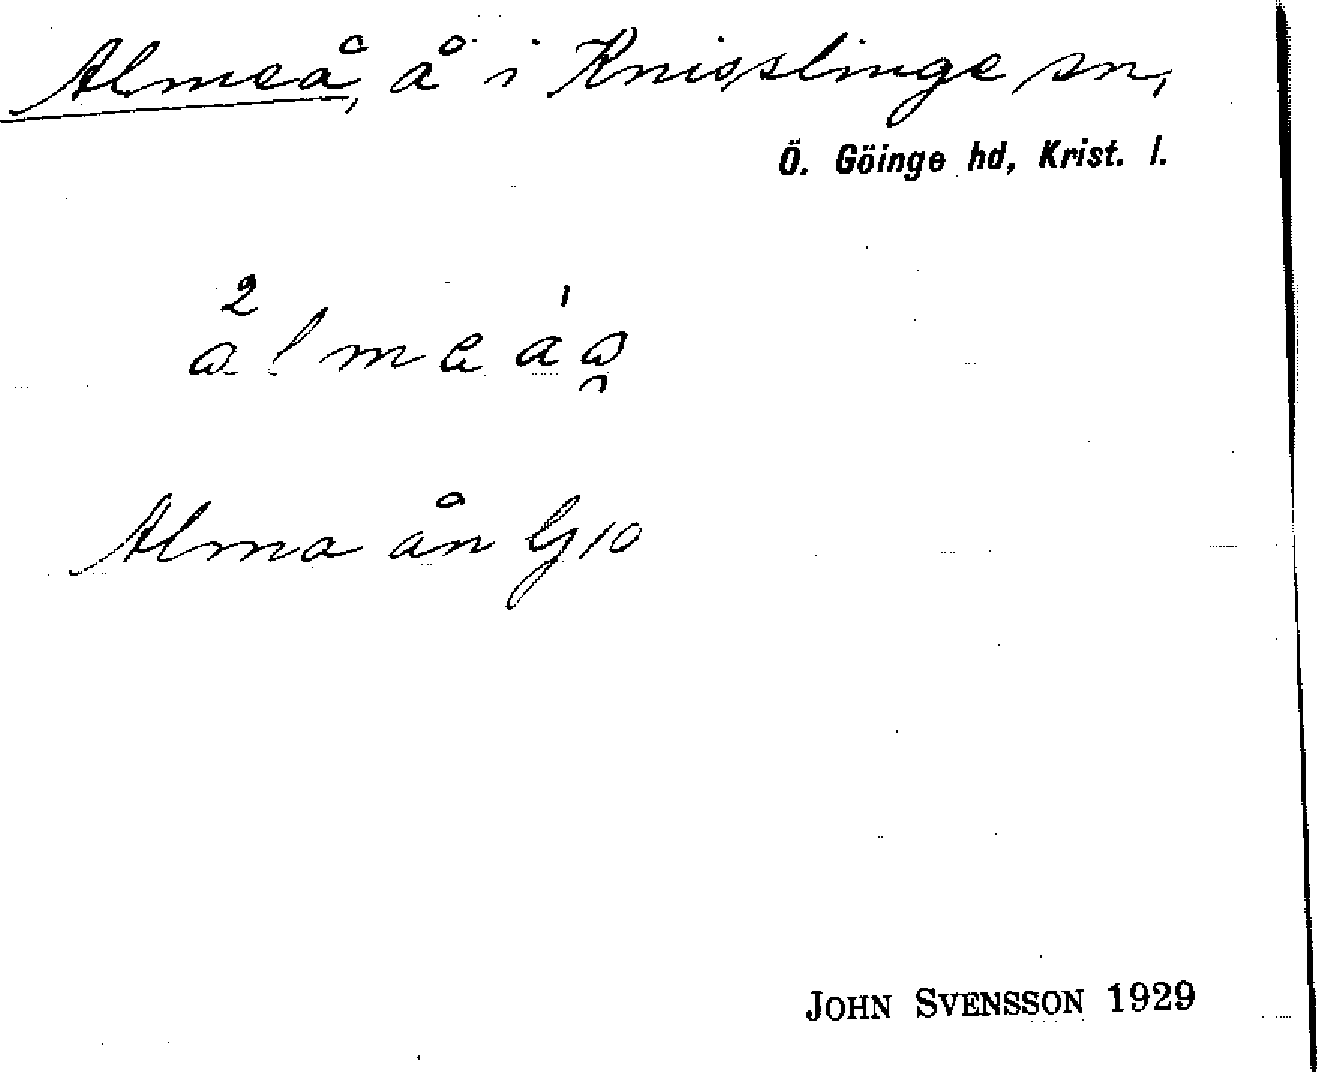 Almeå, å i Knisslinge sn,
Ö. Göinge hd, Krist. l.
Alma ån G10
JOHN SVENSSON 1929